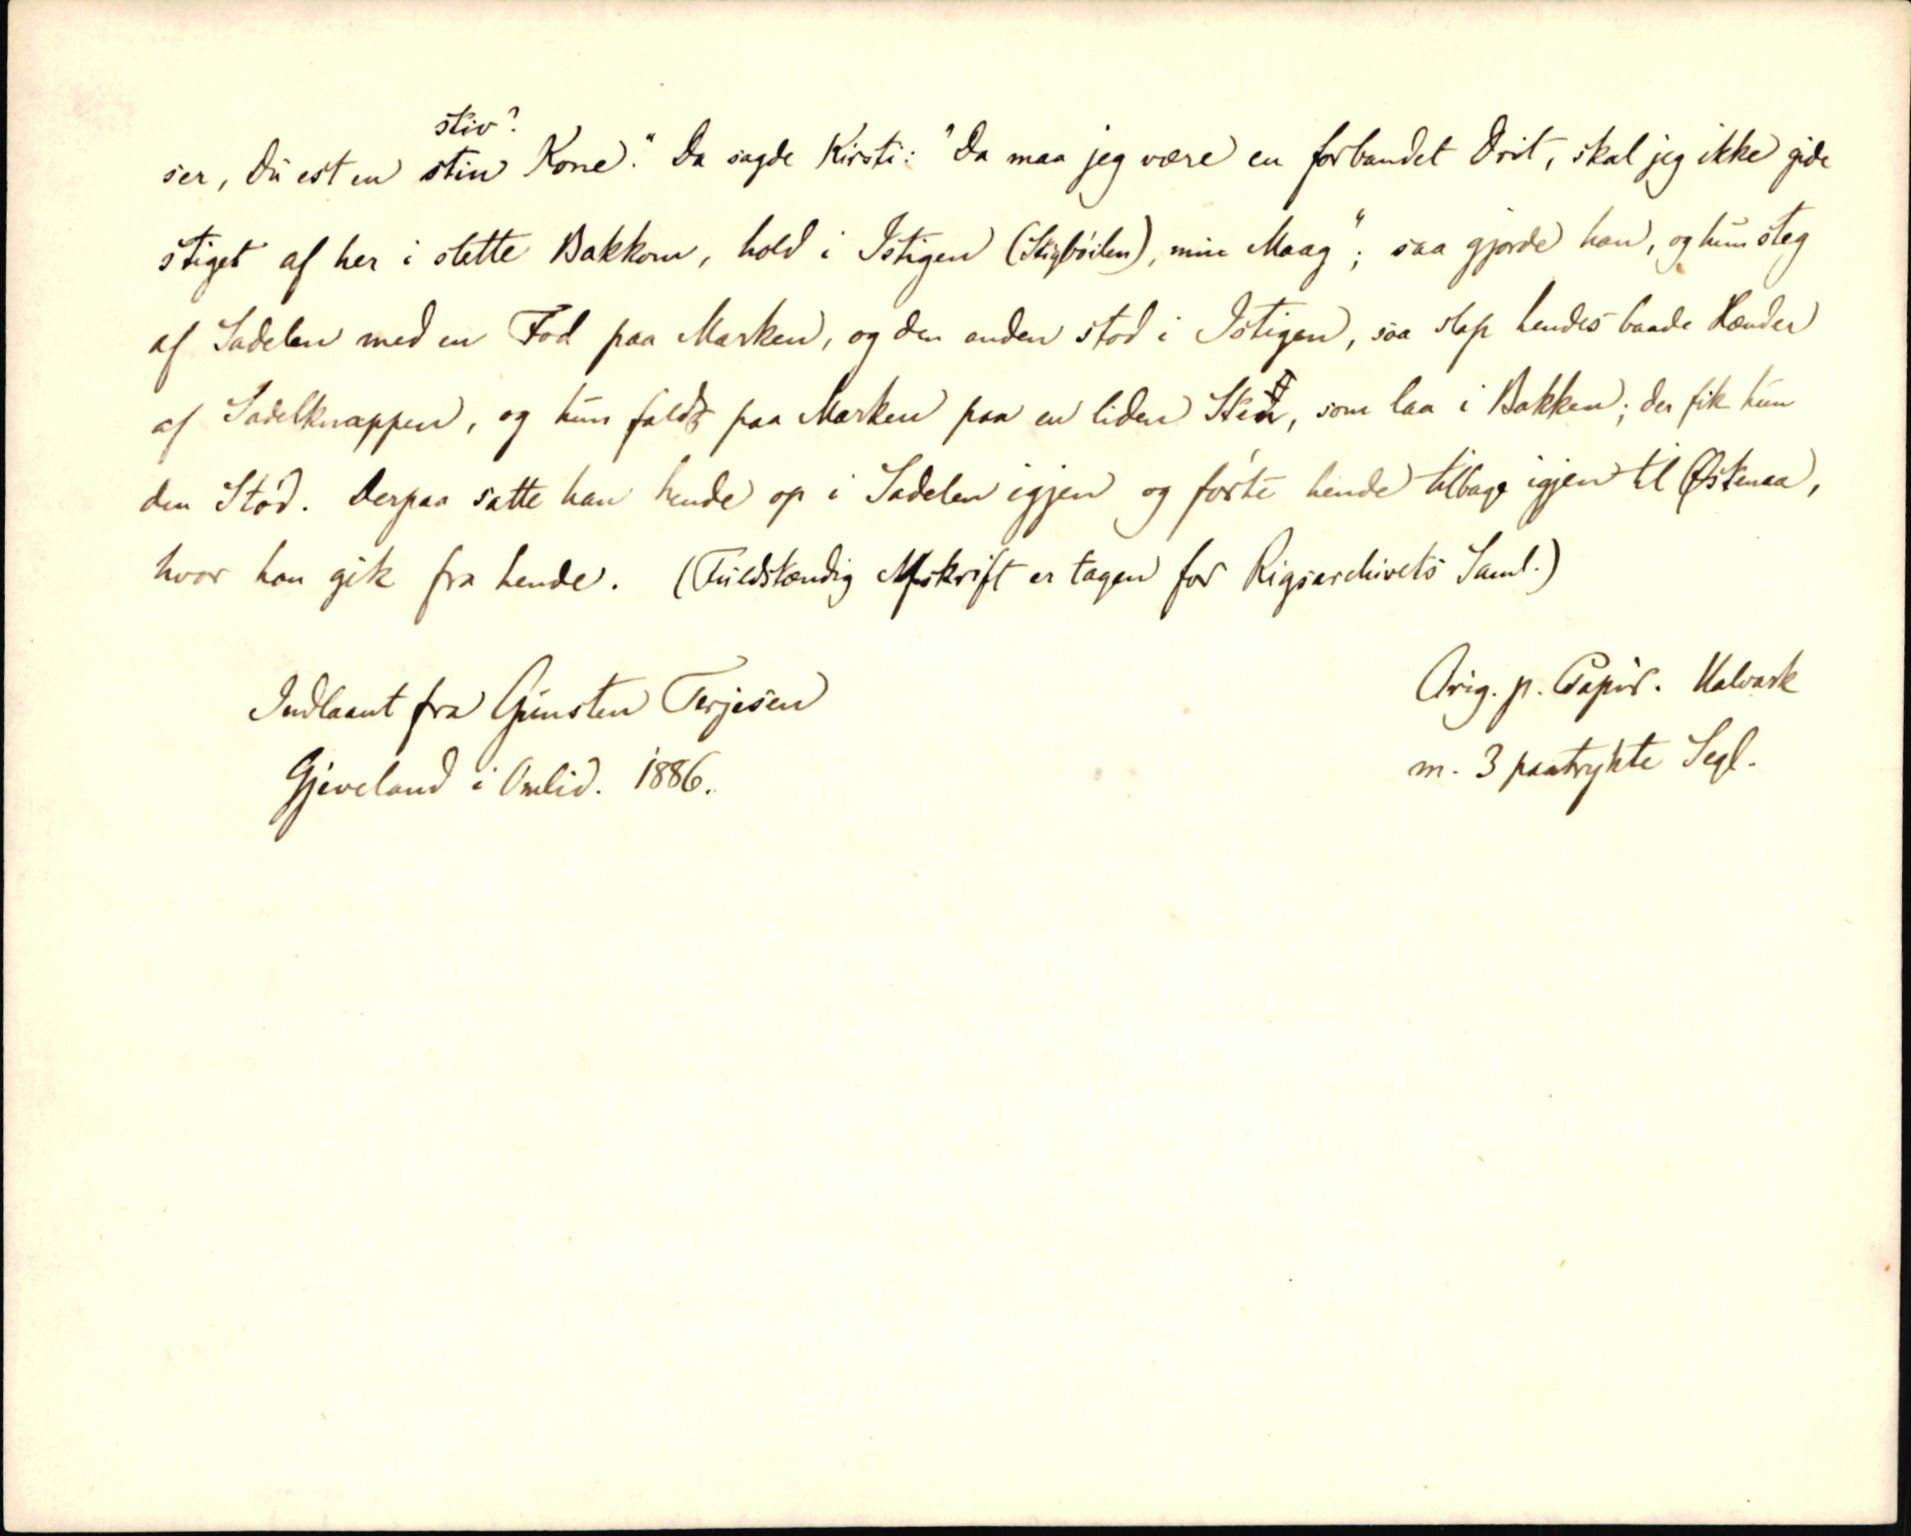 stiv?
ser, du est en stin Kone." Da sagde Kirsti: "Da maa jeg være en forbandet Drit, skal jeg ikke gide
stiget af her i slette Bakkom, hold i Istigen (Stigbøilen), min Maag"; saa gjorde han, og hun steg
af Sadelen med en Fod paa Marken, og den anden stod i Istigen, saa slap hendes baade Hænder
af Sadelknappen, og hun faldt paa Marken paa en liden Sten, som laa i Bakken; der fik hun
den Stød. Derpaa satte han hende op i Sadelen igjen og førte hende tilbage igjen til Østenaa,
hvor han gik fra hende. (Fuldstændig Afskrift er tagen for Rigsarchivets Saml.)
Indlaant fra Gunsten Terjesen
Gjeveland i Omlid. 1886.
Orig. p. Papir. Halvark
m. 3 paatrykte Segl.